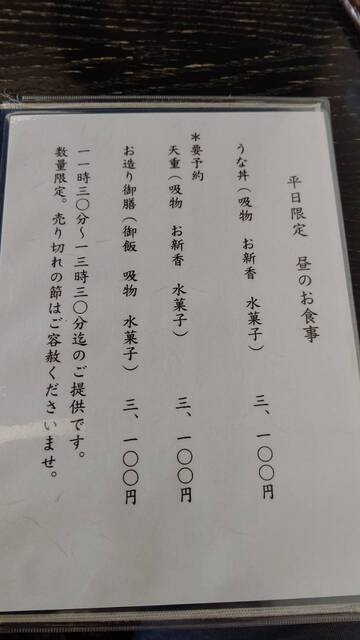 平日限定　昼のお食事
うな丼（吸物　お新香　水菓子）　三、一〇〇円
＊要予約
天重（吸物　お新香　水菓子）　三、一〇〇円
お造り御膳（御飯　吸物　水菓子）　三、一〇〇円
一一時三〇分～一三時三〇分迄のご提供です。
数量限定。売り切れの節はご容赦くださいませ。